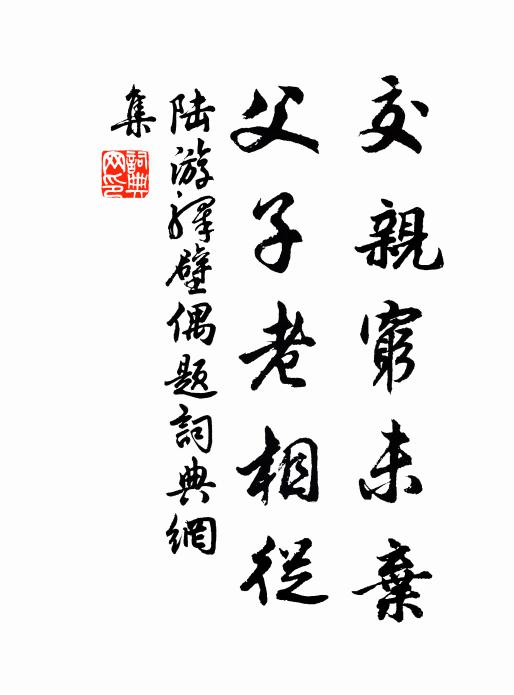 交親窮未棄
父子老相從
陸游禪壁偶題詞典網
集
詞典網印